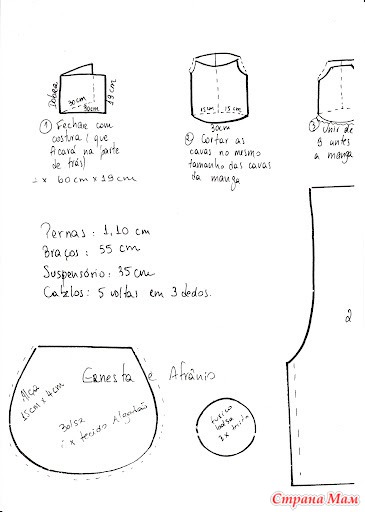 Dobra
30cm
30cm
19cm
① Fechar com
costura ( que
ficará na parte
de trás)
1 x 60cm x 19cm
15cm 15cm
30cm
② Cortar as
cavas no mesmo
tamanho das cavas
da manga
③ Unir de
antes
a manga
Pernas: 1,10 cm
Braços: 55 cm
Suspensório: 35cm
Cabelos: 5 voltas em 3 dedos.
2
Ernesta e Afrânio
Alça
15cm x 4cm
Bolsa
2 x tecido Algodão
bolsa
2x tecido
Страна Мам